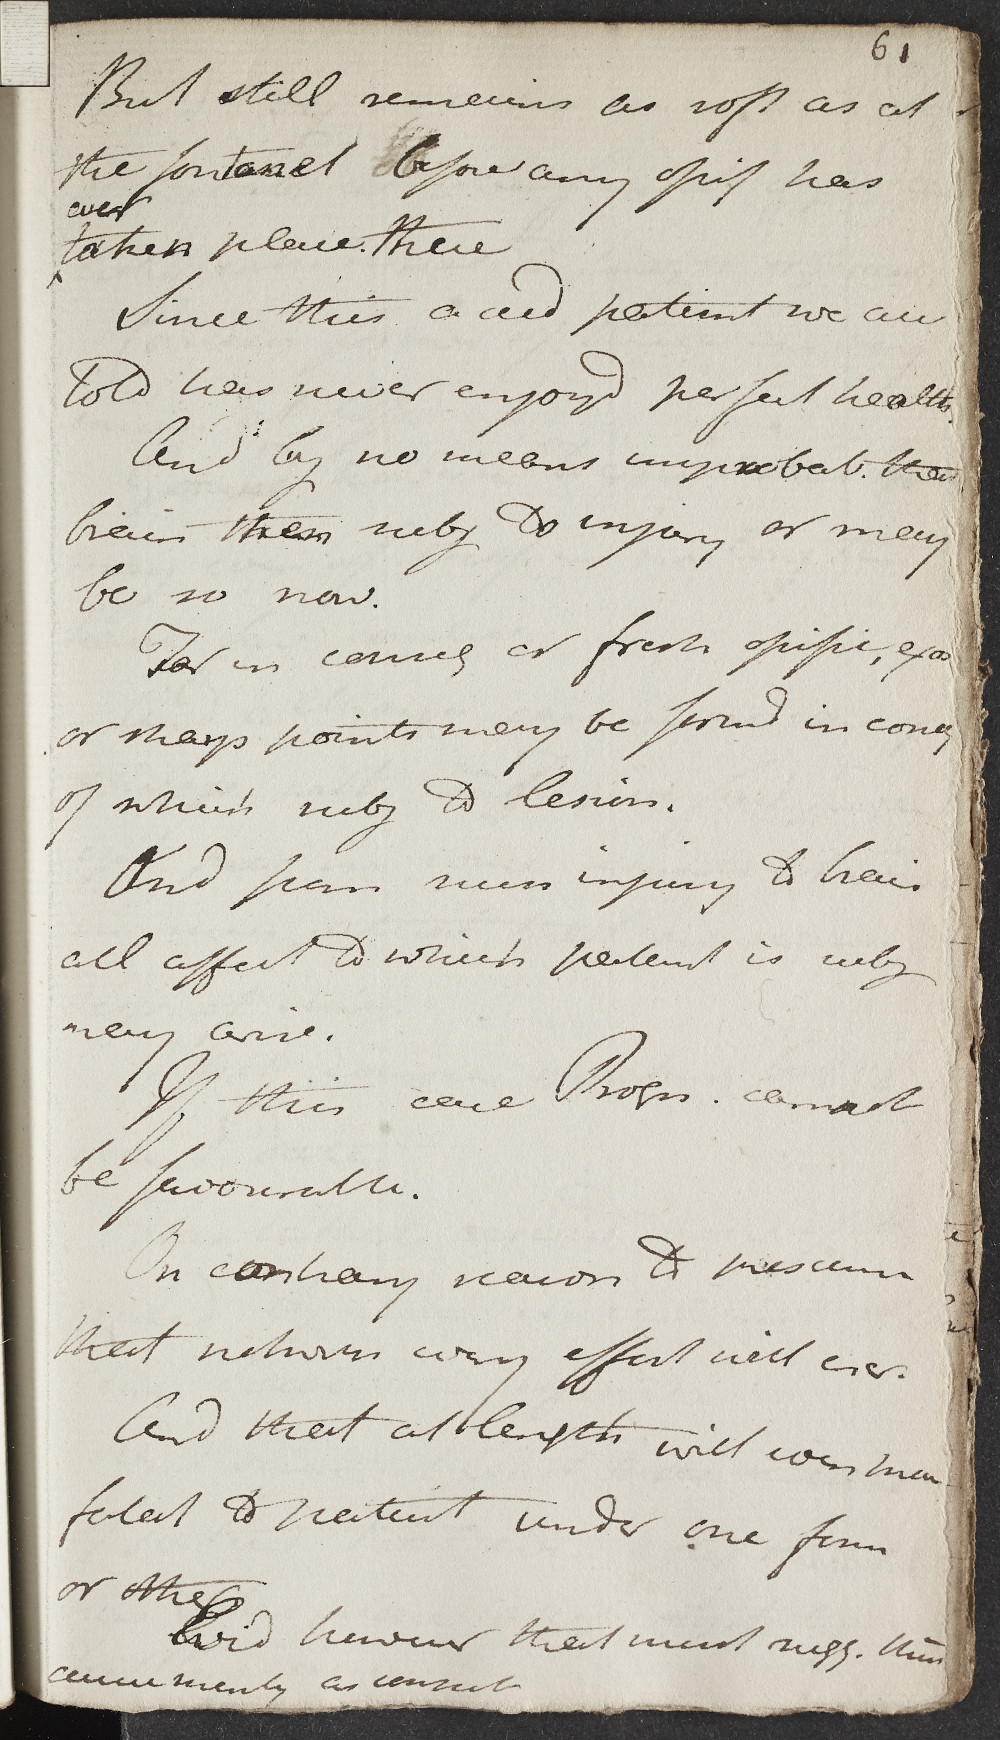 61
But still remains as soft as at
the fontanel before any ossif has
ever
taken place there
Since this accid patient we are
told has never enjoyd perfect health
And by no means improbab. that
brain then subj to injury or may
be so now.
For in conseq of fresh ossific,
or sharp points may be formd in conseq
of which subj to lesion.
And from such injury to brain
all affect to which patient is subj
may arise.
If this case Progn. cannot
be favourable.
On contrary reason to presume
that every effort will
And that at length will even
fatal to patient under one form
or other
however that must sugg. this
as consult